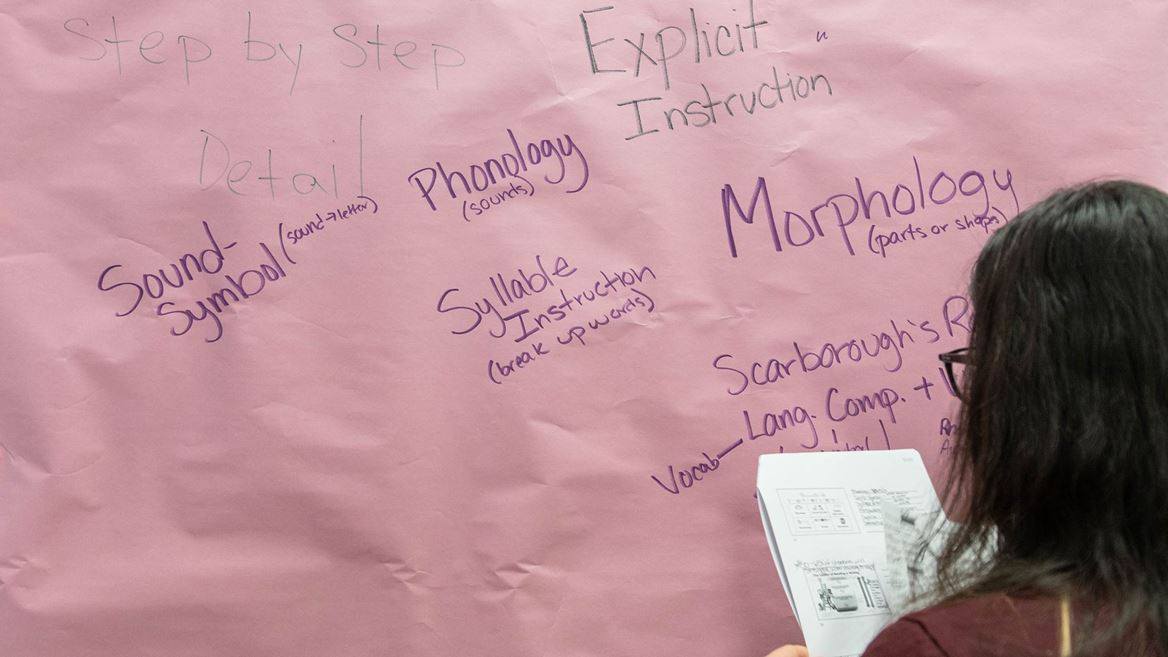 Step by Step
Detail
Explicit
Instruction
Phonology
(sounds)
Morphology
(parts or shape)
Sound-
Symbol (sound→letter)
Syllable
Instruction
(break up words)
Scarborough's
Lang. Comp. +
Vocab